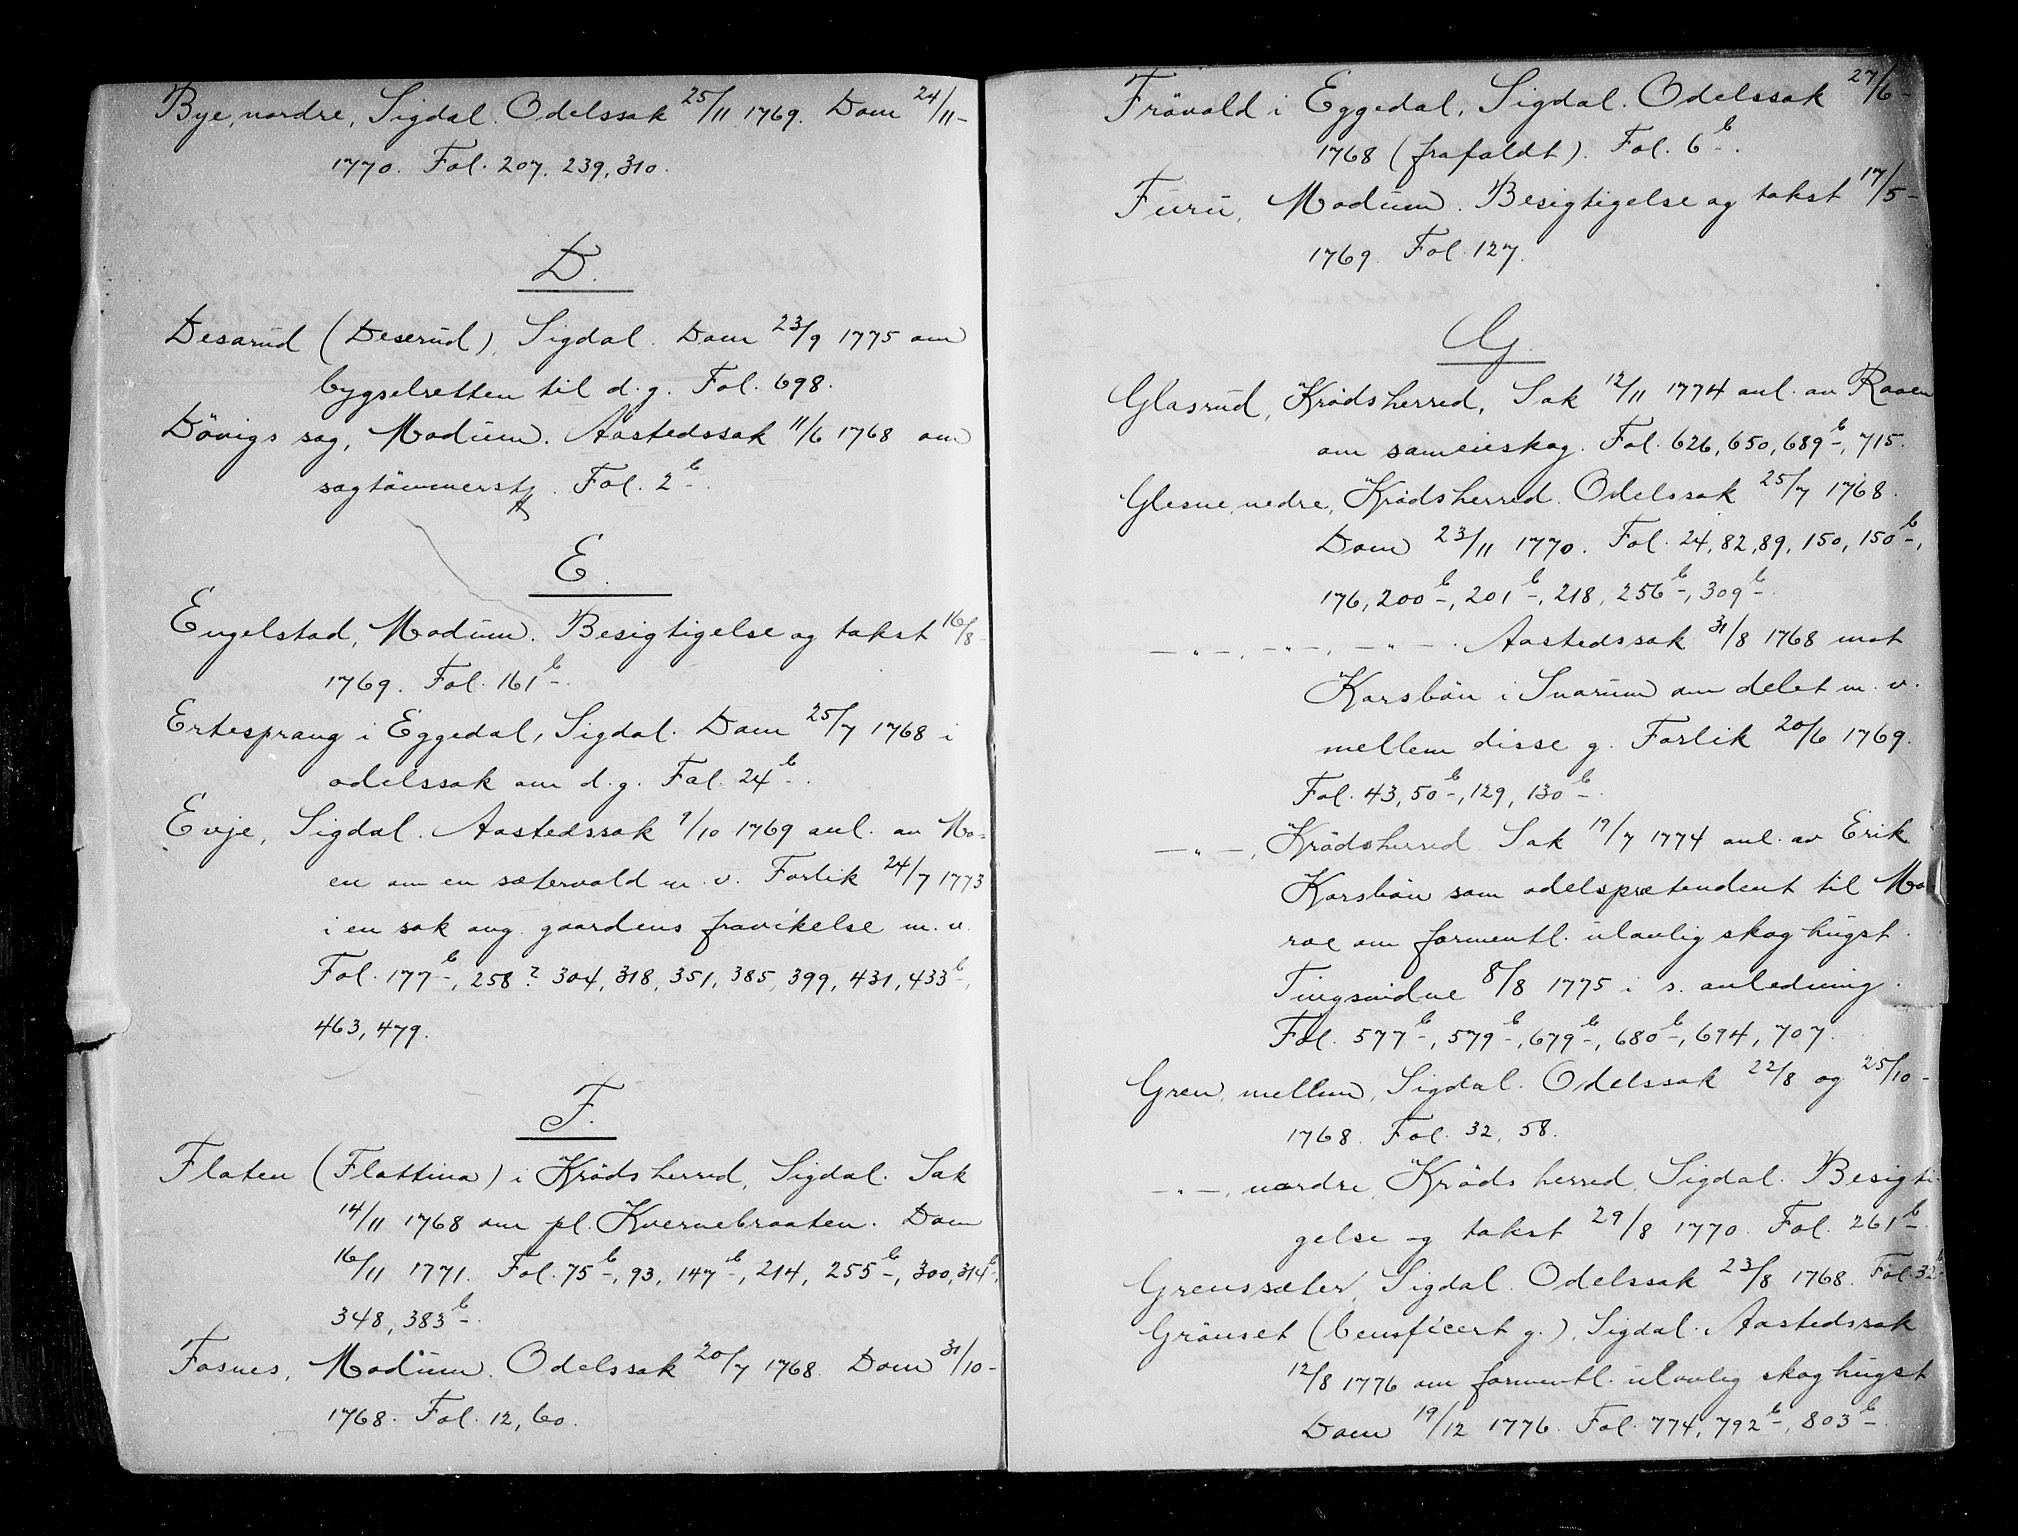 Bye, nordre, Sigdal. Odelssak 25/11 1769. Dom 24/11-
1770. Fol. 207. 239, 310.
D.
Desarud (Deserud), Sigdal. Dom 23/9 1775 om
bygselretten til d. g. Fol. 698.
Dövigs sag, Modum. Aastedssak 11/6 1768 om
sagtömmerstj. Fol. 2 b.
E.
Engelstad, Modum. Besigtigelse og takst 16/8-
1769. Fol. 161 b.
Ertesprang i Eggedal, Sigdal. Dom 25/7 1768 i
odelssak om d. g. Fol. 24 b.
Evje, Sigdal. Aastedssak 9/10 1769 anl. av Mo-
en om en sætervold m. v. Forlik 24/7 1773
i en sak ang. gaardens fravikelse m. v.
Fol. 177 b, 258? 304, 318, 351, 385, 399, 431, 433 b,
463, 479.
F.
Flaten (Flattina) i Krödsherred, Sigdal. Sak
14/11 1768 om pl. Kvernebraaten. Dom
16/11 1771. Fol. 75 b, 93, 147 b, 214, 255 b, 300, 314 b,
348, 383 b.
Fosnes, Modum. Odelssak 20/7 1768. Dom 31/10-
1768. Fol. 12, 60.
Frövold i Eggedal, Sigdal. Odelssak 27/6-
1768 (frafaldt). Fol. 6 b.
Furu, Modum. Besigtigelse og takst 17/5-
1769. Fol. 127.
G.
Glasrud, Krödsherred, Sak 12/11 1774 anl. av Raaen
om sameieskog. Fol. 626, 650, 689 b, 715.
Glesne, nedre, Krödsherred. Odelssak 25/7 1768.
Dom 23/11 1770. Fol. 24, 82, 89, 150, 150 b,
176, 200 b, 201 b, 218, 256 b, 309 b.
— " —, — " —, — " —. Aastedssak 31/8 1768 mot
Korsbön i Snarum om delet m. v.
mellem disse g. Forlik 20/6 1769.
Fol. 43, 50 b, 129, 130 b.
— " —, Krödsherred. Sak 19/7 1774 anl. av Erik
Korsbön som odelsprætendent til Mo-
roe om formentl. ulovlig skoghugst.
Tingsvidne 8/8 1775 i s. anledning.
Fol. 577 b, 579 b, 679 b, 680 b, 694, 707.
Gren, mellem, Sigdal. Odelssak 22/8 og 25/10-
1768. Fol. 32, 58.
— " —, nordre, Kröds herred, Sigdal. Besigti-
gelse og takst 29/8 1770. Fol. 261 b.
Grenssæter, Sigdal. Odelssak 23/8 1768. Fol. 32 b
Grönset (beneficert g.), Sigdal. Aastedssak
12/8 1776 om formentl. ulovlig skoghugst
Dom 19/12 1776. Fol. 774, 792 b, 803 b.